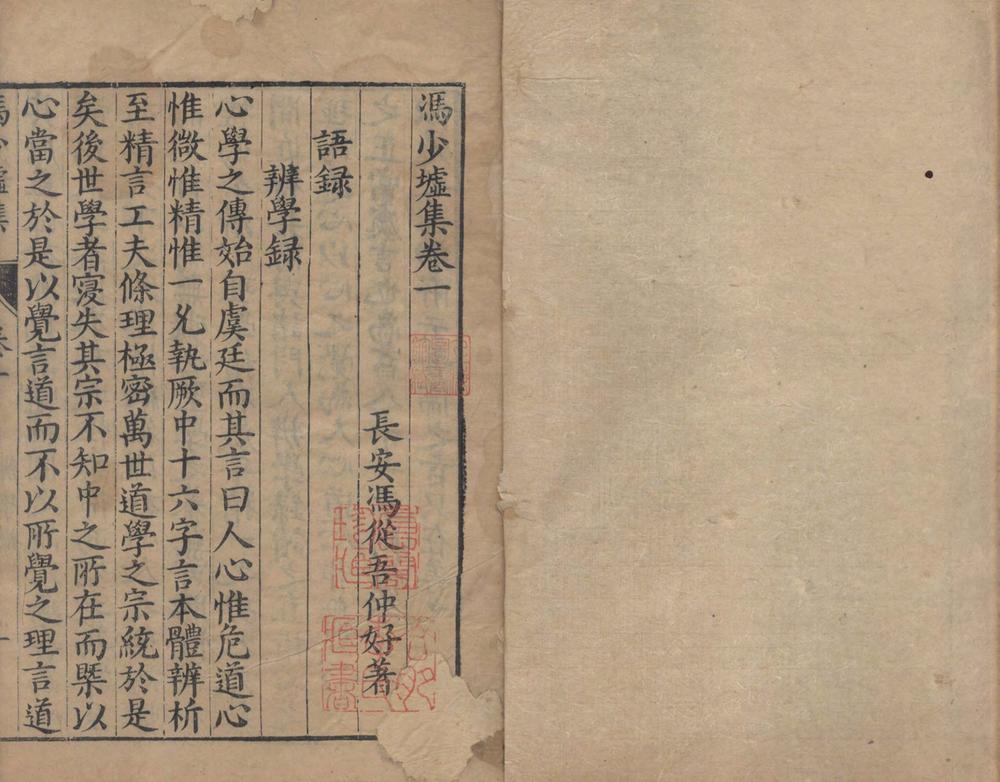 馮少墟集卷一
長安馮從吾仲好著
語録
辨學録
心學之傳始自虞廷而其言曰人心惟危道心
惟微惟精惟一允執厥中十六字言本體辨析
至精言工夫條理極密萬世道學之宗統於是
矣後世學者寖失其宗不知中之所在而槩以
心當之於是以覺言道而不以所覺之理言道
馮少墟集
卷一
一